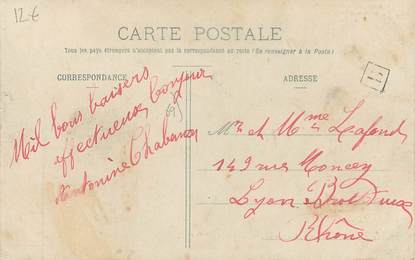 12€
CARTE POSTALE
Tous les pays étrangers n'acceptent pas la correspondance au recto (Se renseigner à la Poste)
CORRESPONDANCE
ADRESSE
B
Mil bons baisers
affectueux Bonjour
69
Antonine Chabanon
Mr et Mme Lafond
149 rue Moncey
Lyon
Rhône